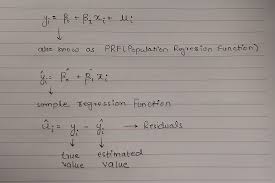 yi = β1 + β2 xi + ui
↓
also known as PRF (Population Regression Function)
ŷi = β̂0 + β̂1 xi
↓
sample regression Function
ûi = yi - ŷi → Residuals
↓ ↓
true estimated
value value